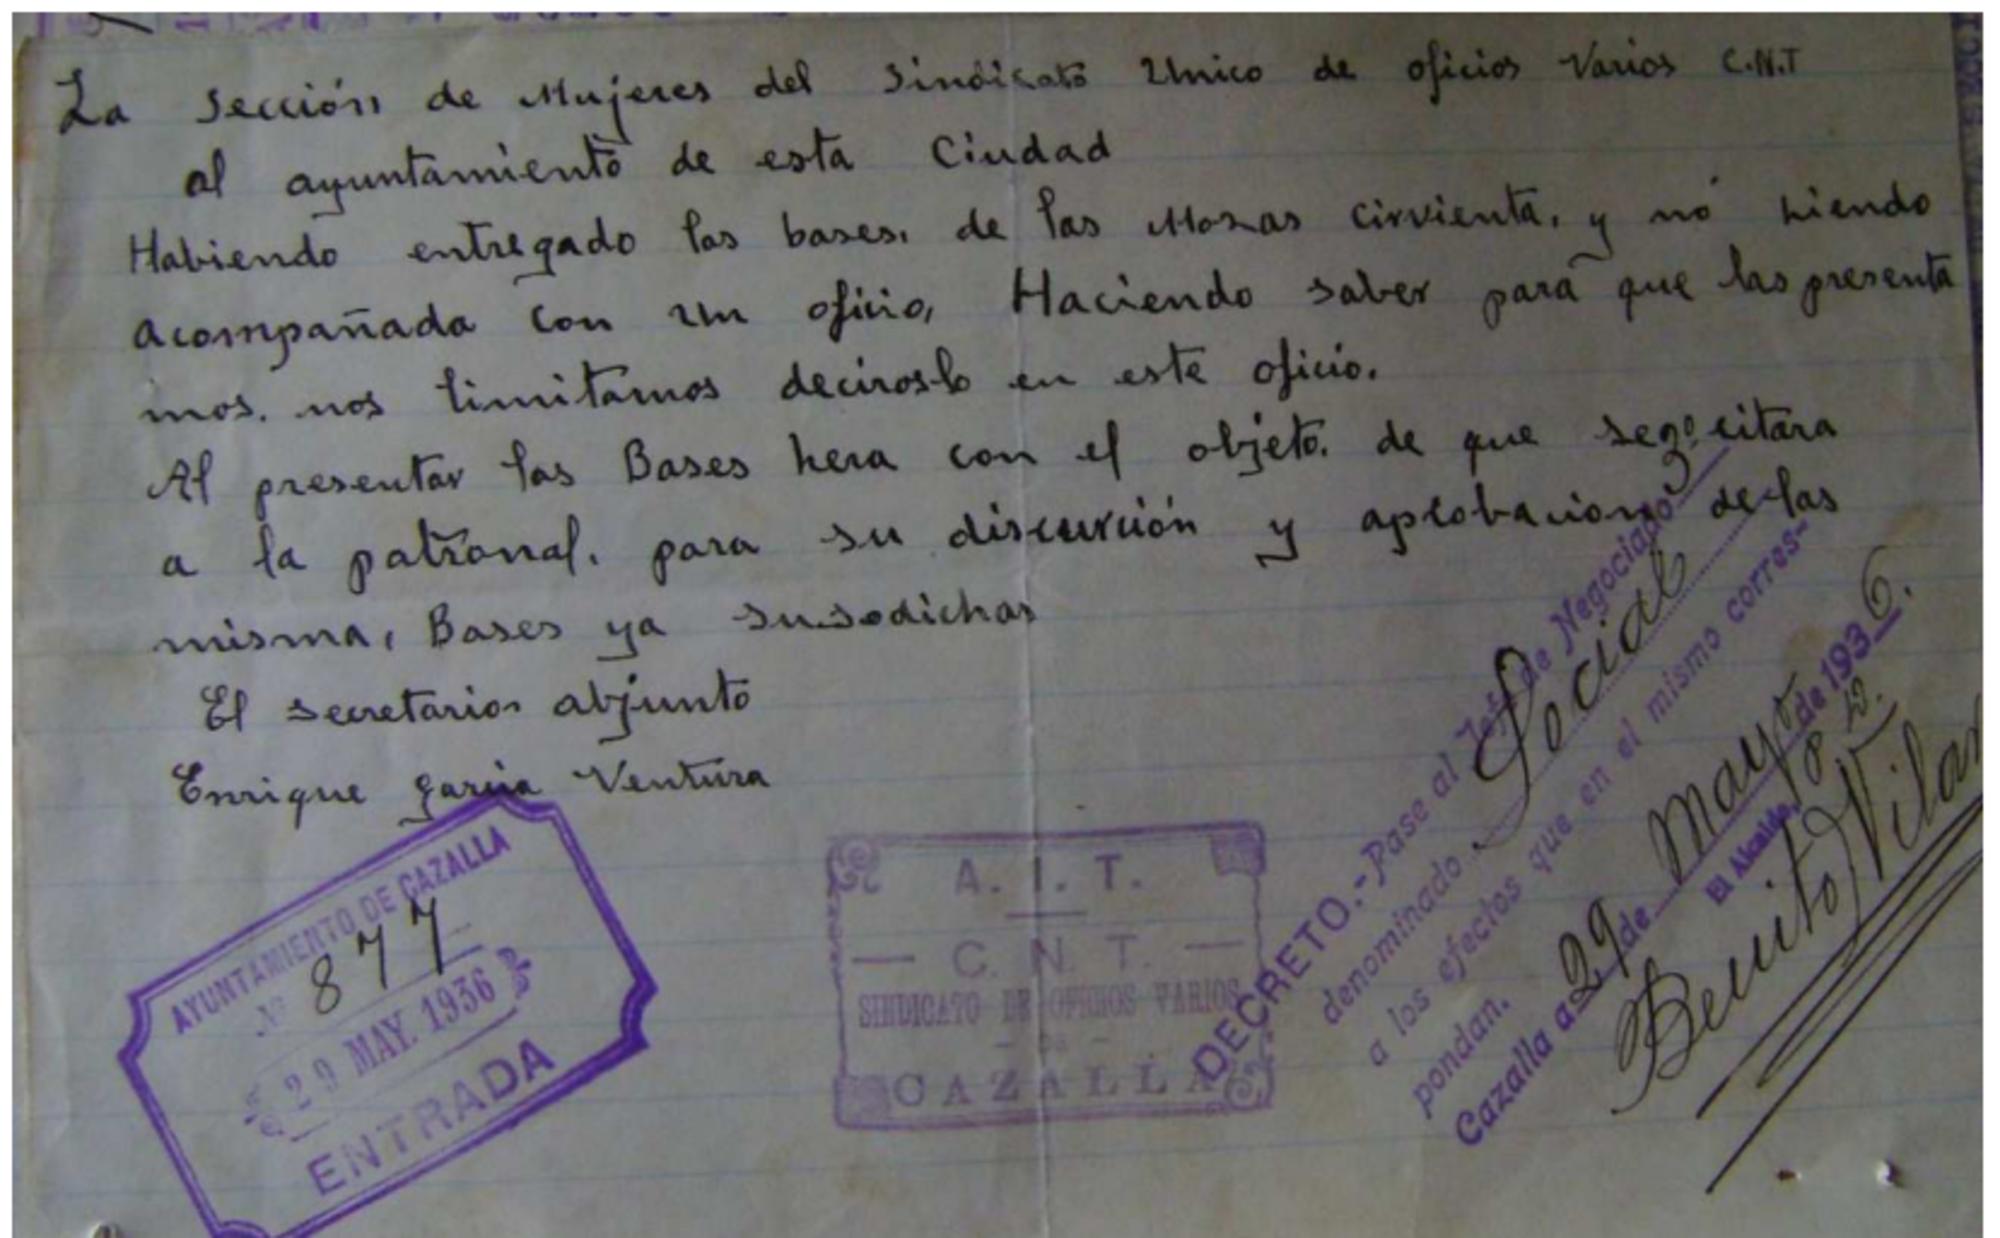 La Sección de Mujeres del Sindicato Unico de oficios Varios C.N.T
al ayuntamiento de esta Ciudad
Habiendo entregado las bases, de las Mozas cirvienta, y nó hiendo
acompañada con un oficio, Haciendo saber para que las presenta
mos. nos limitamos deciroslo en este oficio.
Al presentar las Bases hera con el objeto. de que citara
a la patronal. para su discurción y aprobacion de las
misma, Bases ya susodichas
El secretario abjunto
Enrique garcia Ventura
AYUNTAMIENTO DE CAZALLA
Nº 877
29 MAY. 1936
ENTRADA
A. I. T.
C. N. T.
SINDICATO DE OFICIOS VARIOS
DE
CAZALLA
DECRETO.-Pase al Jefe de Negociado
denominado Social
a los efectos que en el mismo corres-
pondan.
Cazalla a 29 de mayo de 1936.
El Alcalde,
Benito Vilar